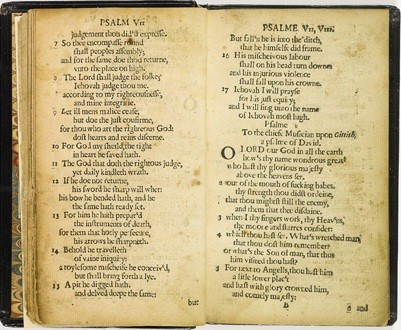 PSALM VII
judgement thou did'st expresse.
7 So thee encompasse round
shall peoples assembly:
and for the same doe thou returne,
unto the place on high.
8 The Lord shall judge the folke,
Iehovah judge thou me,
according to my righteousnesse,
and mine integritie.
9 Let ill mens malice cease,
but doe the just confirme,
for thou who art the righteous God:
dost hearts and reins discerne.
10 For God my sheild, the right
in heart he saved hath.
11 The God that doth the righteous judge,
yet daily kindleth wrath.
12 If he doe not returne,
his sword he sharp will whet:
his bow he bended hath, and he
the same hath ready set.
13 For him he hath prepar'd
the instruments of death.
for them that hotly persecute,
his arrows he sharpneth.
14 Behold he travelleth
of vaine iniquity:
a toylesome mischeife he conceiv'd,
but shall bring forth a lye.
15 A pit he digged hath,
and delved deepe the same:
but
PSALME VII, VIII.
But fall'n he is into the ditch,
that he himselfe did frame.
16 His mischeivous labour
shall on his head turn downe:
and his injurious violence
shall fall upon his crowne.
17 Iehovah I will prayse
for his just equity:
and I will sing unto the name
of Iehovah most high.
Psalme
To the chiefe Musician upon Gittith,
a psalme of David.
O LORD our God in all the earth
how's thy name wondrous great
who hast thy glorious majesty
above the heavens set.
2 out of the mouth of sucking babes,
thy strength thou didst ordeine,
that thou mightst still the enemy,
and them that thee disdaine.
3 when I thy fingers work, thy Heav'ns,
the moone and starres consider:
4 which thou hast set. What's wretched man
that thou dost him remember?
or what's the Son of man, that thus
him visited thou hast?
5 For next to Angells, thou hast him
a little lower plac't
and hast with glory crowned him,
and comely majesty:
B
6 and